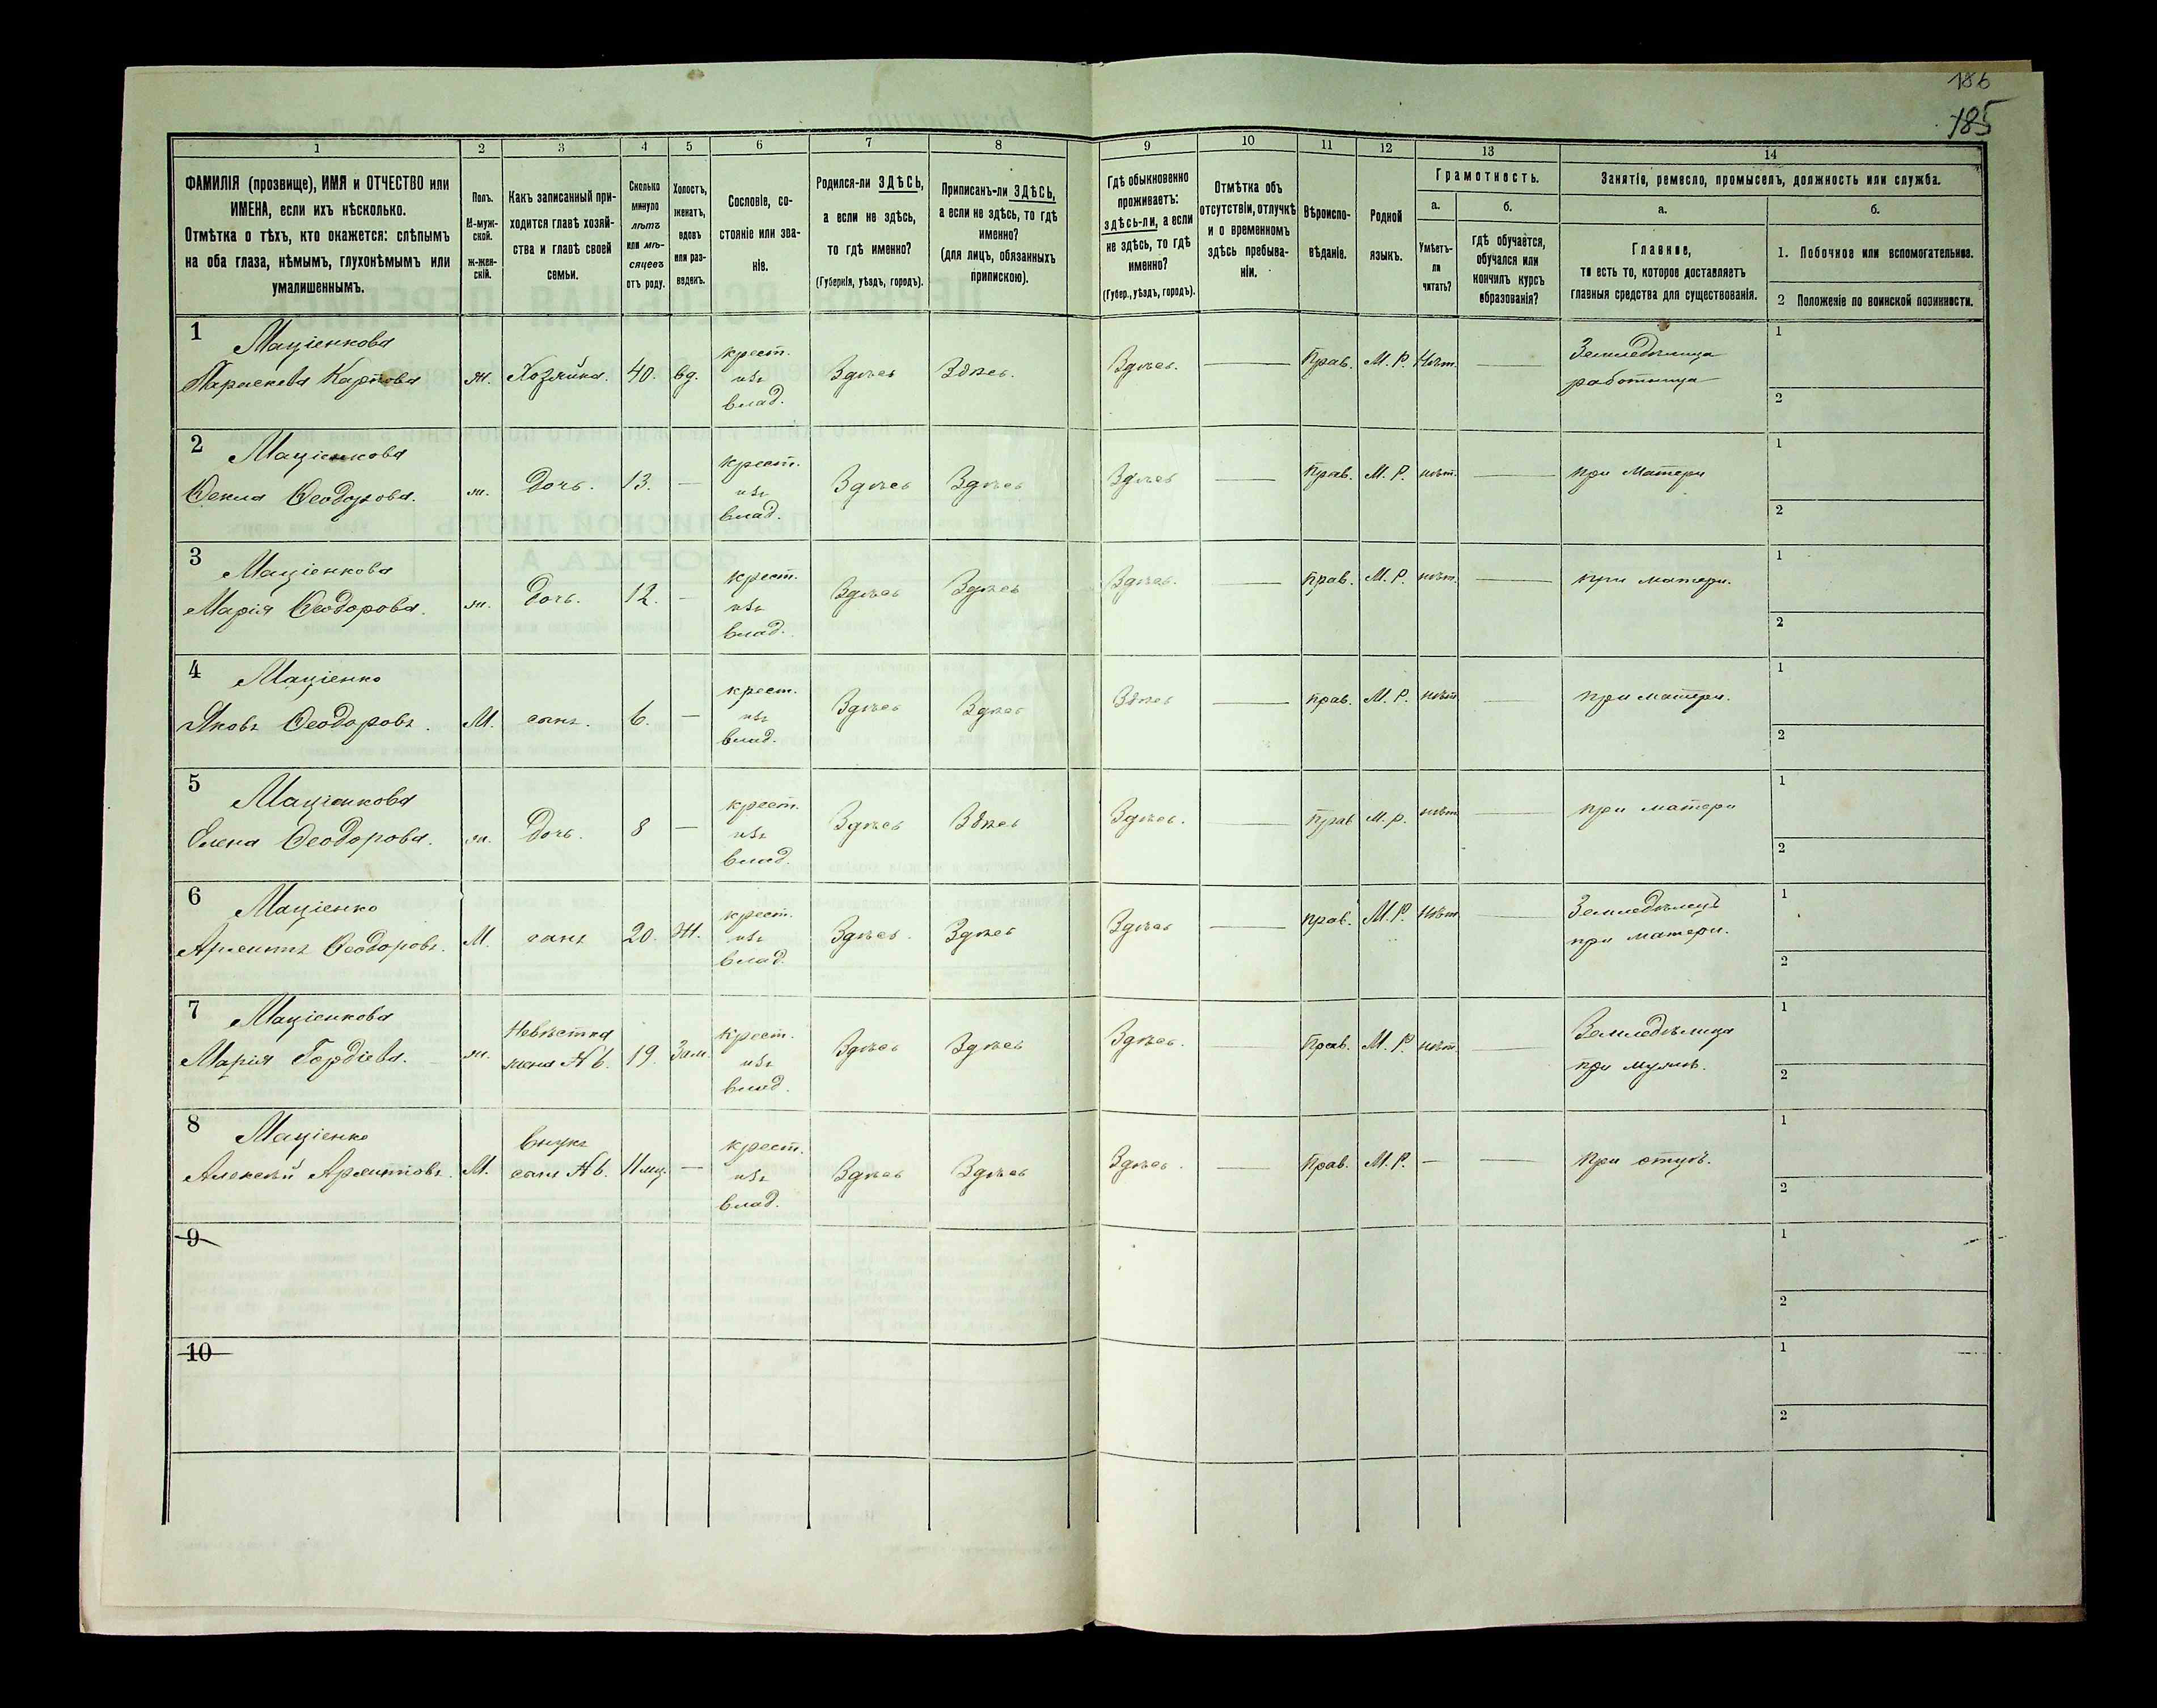 186
185
1
2
3
4
5
6
7
8
9
10
11
12
13
14
ФАМИЛІЯ (прозвище), ИМЯ и ОТЧЕСТВО или
ИМЕНА, если ихъ нѣсколько.
Отмѣтка о тѣхъ, кто окажется: слѣпымъ
на оба глаза, нѣмымъ, глухонѣмымъ или
умалишеннымъ.
Полъ.
М-муж-
ской.
Ж-жен-
скій.
Какъ записанный при-
ходится главѣ хозяй-
ства и главѣ своей
семьи.
Сколько
минуло
лѣтъ
или мѣ-
сяцевъ
отъ роду.
Холостъ,
женатъ,
вдовъ
или раз-
веденъ.
Сословіе, со-
стояніе или зва-
ніе.
Родился-ли ЗДѢСЬ,
а если не здѣсь,
то гдѣ именно?
(Губернія, уѣздъ, городъ).
Приписанъ-ли ЗДѢСЬ,
а если не здѣсь, то гдѣ
именно?
(для лицъ, обязанныхъ
припискою).
Гдѣ обыкновенно
проживаетъ:
здѣсь-ли, а если
не здѣсь, то гдѣ
именно?
(Губер., уѣздъ, городъ).
Отмѣтка объ
отсутствіи, отлучкѣ
и о временномъ
здѣсь пребыва-
ніи.
Вѣроиспо-
вѣданіе.
Родной
языкъ.
Грамотность.
а.
Умѣетъ-
ли
читать?
б.
гдѣ обучается,
обучался или
кончилъ курсъ
образованія?
Занятіе, ремесло, промыселъ, должность или служба.
а.
Главное,
то есть то, которое доставляетъ
главныя средства для существованія.
б.
1. Побочное или вспомогательное.
2 Положеніе по воинской повинности.
1 Маціенкова
Параскева Карпова ж. Хозяйка. 40. вд. крест. изъ влад. Здѣсь Здѣсь. Здѣсь. — Прав. М. Р. Нѣт. — Земледѣлица работница 1 2
2 Маціенкова
Фекла Феодорова. ж. Дочь. 13. — крест. изъ влад. Здѣсь Здѣсь Здѣсь — Прав. М. Р. нѣт. — при матери 1 2
3 Маціенкова
Марія Феодорова. ж. Дочь. 12. — крест. изъ влад. Здѣсь Здѣсь Здѣсь. — прав. М. Р. нѣт. — при матери. 1 2
4 Маціенко
Яковъ Феодоровъ. М. сынъ. 6. — крест. изъ влад. Здѣсь Здѣсь Здѣсь — прав. М. Р. нѣт — при матери. 1 2
5 Маціенкова
Елена Феодорова. ж. Дочь. 8 — крест. изъ влад. Здѣсь Здѣсь Здѣсь. — Прав М. р. нѣт — при матери 1 2
6 Маціенко
Феодоровъ. М. сынъ 20. Ж. крест. изъ влад. Здѣсь. Здѣсь Здѣсь — прав. М. Р. Нѣт — Земледѣлецъ при матери. 1 2
7 Маціенкова
Марія Гордіева. ж. Невѣстка жена № 6. 19. Зам. Крест. изъ влад. Здѣсь Здѣсь Здѣсь. — Прав. М. Р. нѣт — Земледѣлица при мужѣ. 1 2
8 Маціенко
Алексѣй М. внукъ сынъ № 6. 11 мц. — крест. изъ влад. Здѣсь Здѣсь Здѣсь. — Прав. М. Р. — — При отцѣ. 1 2
9 1 2
10 1 2